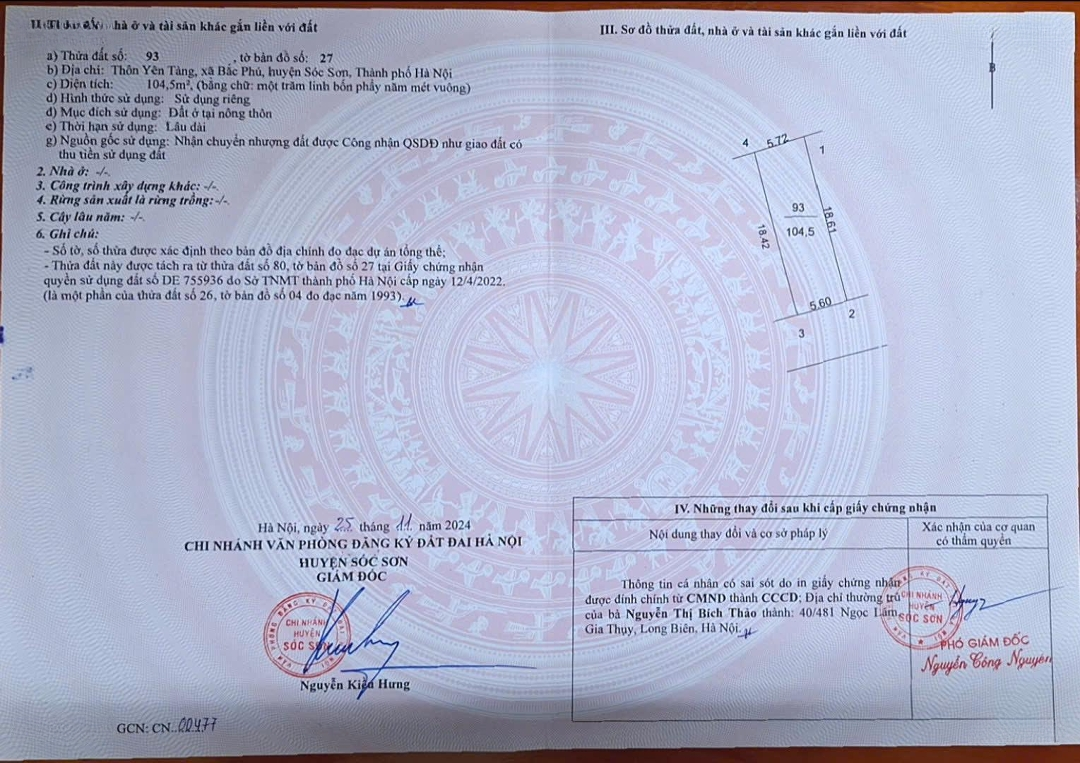 hà ở và tài sản khác gắn liền với đất
a) Thửa đất số: 93 , tờ bản đồ số: 27
b) Địa chỉ: Thôn Yên Tàng, xã Bắc Phú, huyện Sóc Sơn, Thành phố Hà Nội
c) Diện tích: 104,5m², (bằng chữ: một trăm linh bốn phẩy năm mét vuông)
d) Hình thức sử dụng: Sử dụng riêng
đ) Mục đích sử dụng: Đất ở tại nông thôn
e) Thời hạn sử dụng: Lâu dài
g) Nguồn gốc sử dụng: Nhận chuyển nhượng đất được Công nhận QSDĐ như giao đất có
thu tiền sử dụng đất
2. Nhà ở: -/-.
3. Công trình xây dựng khác: -/-.
4. Rừng sản xuất là rừng trồng: -/-.
5. Cây lâu năm: -/-.
6. Ghi chú:
- Số tờ, số thửa được xác định theo bản đồ địa chính đo đạc dự án tổng thể;
- Thửa đất này được tách ra từ thửa đất số 80, tờ bản đồ số 27 tại Giấy chứng nhận
quyền sử dụng đất số DE 755936 do Sở TNMT thành phố Hà Nội cấp ngày 12/4/2022.
(là một phần của thửa đất số 26, tờ bản đồ số 04 đo đạc năm 1993).
Hà Nội, ngày 25 tháng 11 năm 2024
CHI NHÁNH VĂN PHÒNG ĐĂNG KÝ ĐẤT ĐAI HÀ NỘI
HUYỆN SÓC SƠN
GIÁM ĐỐC
CHI NHÁNH
HUYỆN
SÓC SƠN
Nguyễn Kiều Hưng
GCN: CN..00477
III. Sơ đồ thửa đất, nhà ở và tài sản khác gắn liền với đất
B
4 5.72 1
93
104,5
18.42
18.61
5.60
3 2
IV. Những thay đổi sau khi cấp giấy chứng nhận
Nội dung thay đổi và cơ sở pháp lý
Xác nhận của cơ quan
có thẩm quyền
Thông tin cá nhân có sai sót do in giấy chứng nhận
được đính chính từ CMND thành CCCD; Địa chỉ thường trú
của bà Nguyễn Thị Bích Thảo thành: 40/481 Ngọc Lâm,
Gia Thụy, Long Biên, Hà Nội.
CHI NHÁNH
HUYỆN
SÓC SƠN
PHÓ GIÁM ĐỐC
Nguyễn Công Nguyên